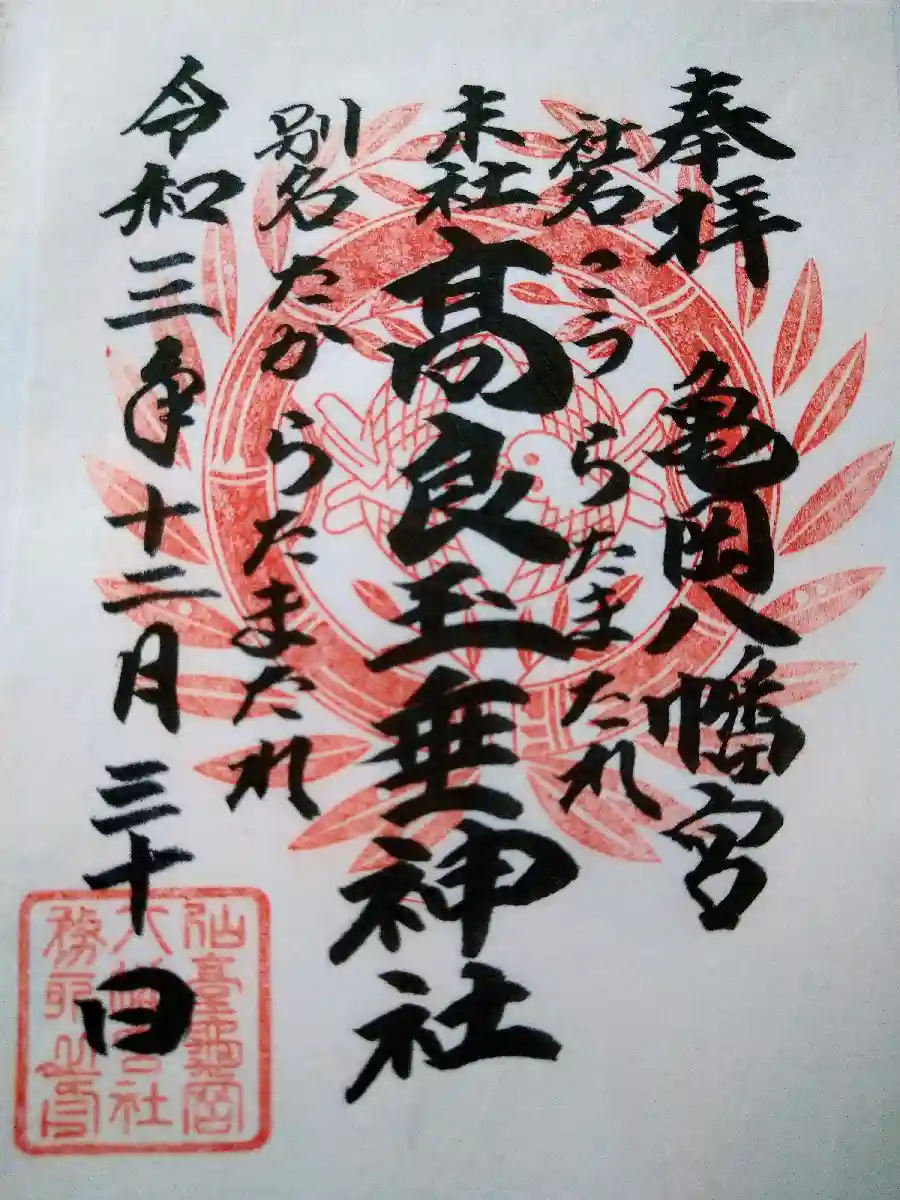 奉拝
亀岡八幡宮
社名 こうらたまたれ
末社
髙良玉垂神社
別名 たからたまたれ
令和三年十二月三十日
仙臺龜岡
八幡宮社
務所之印